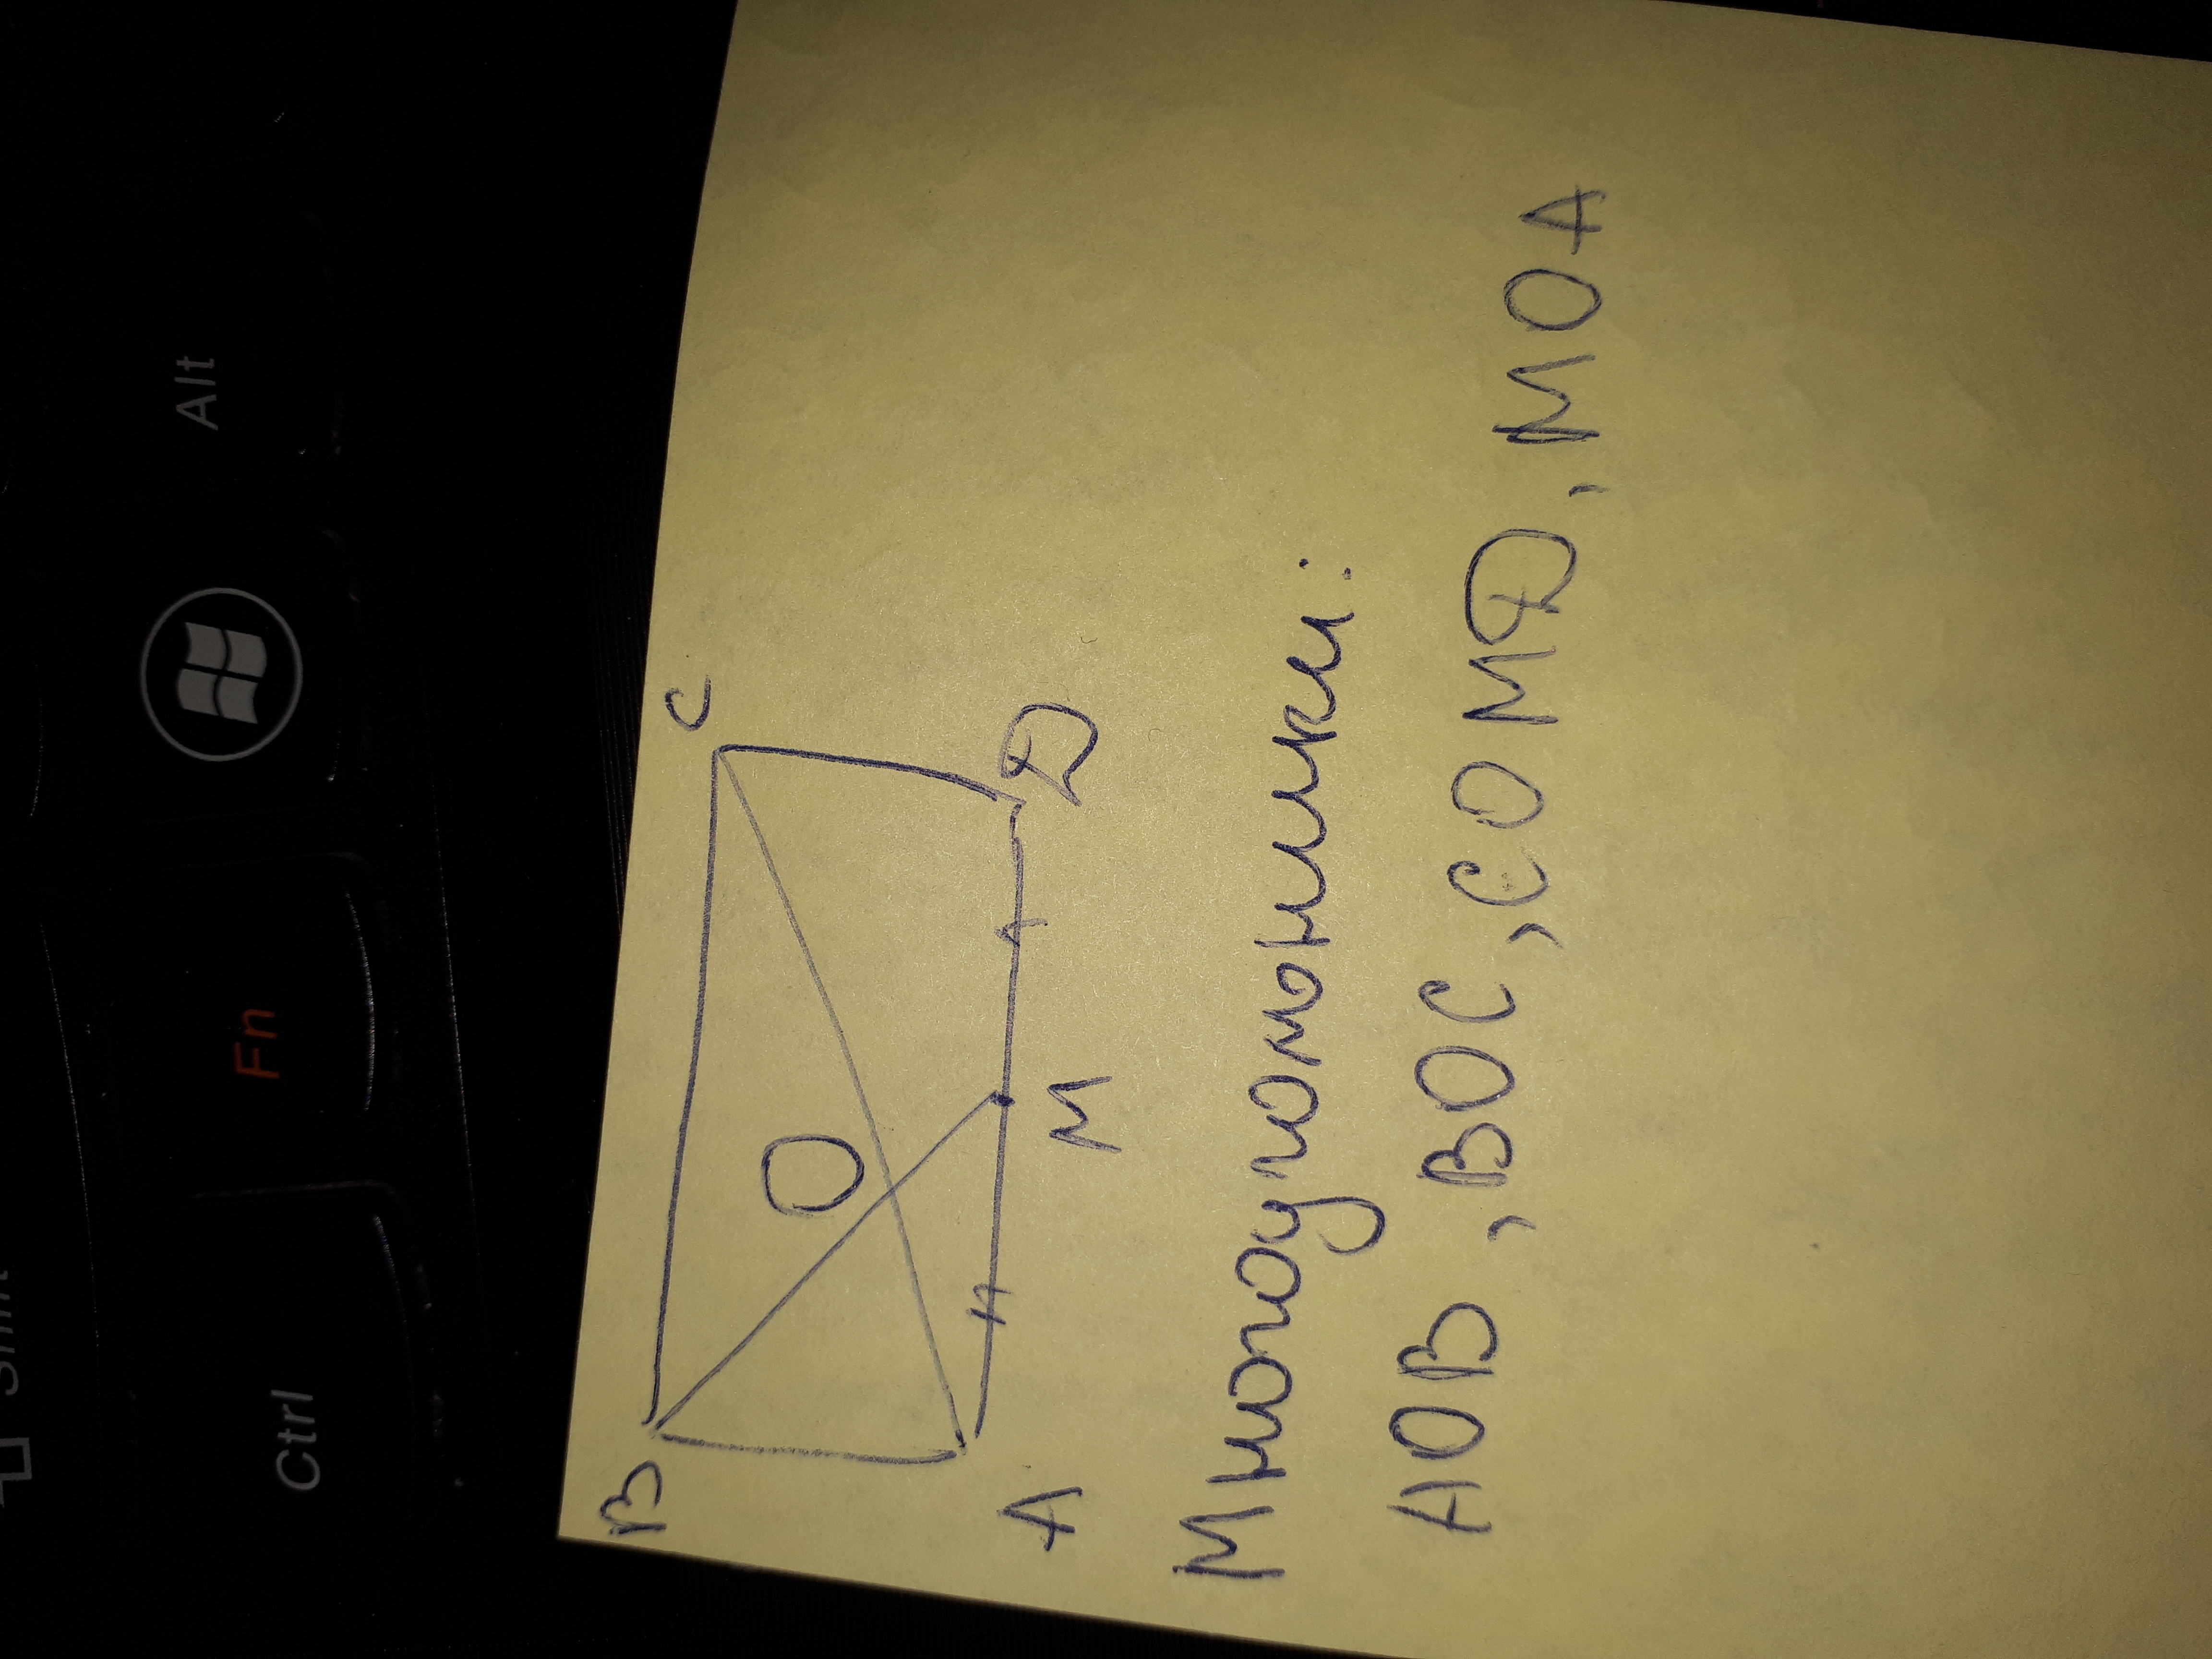 Alt
Fn
Ctrl
B
C
O
A
M
D
Многоугольники:
AOB, BOC, COMD, MOA